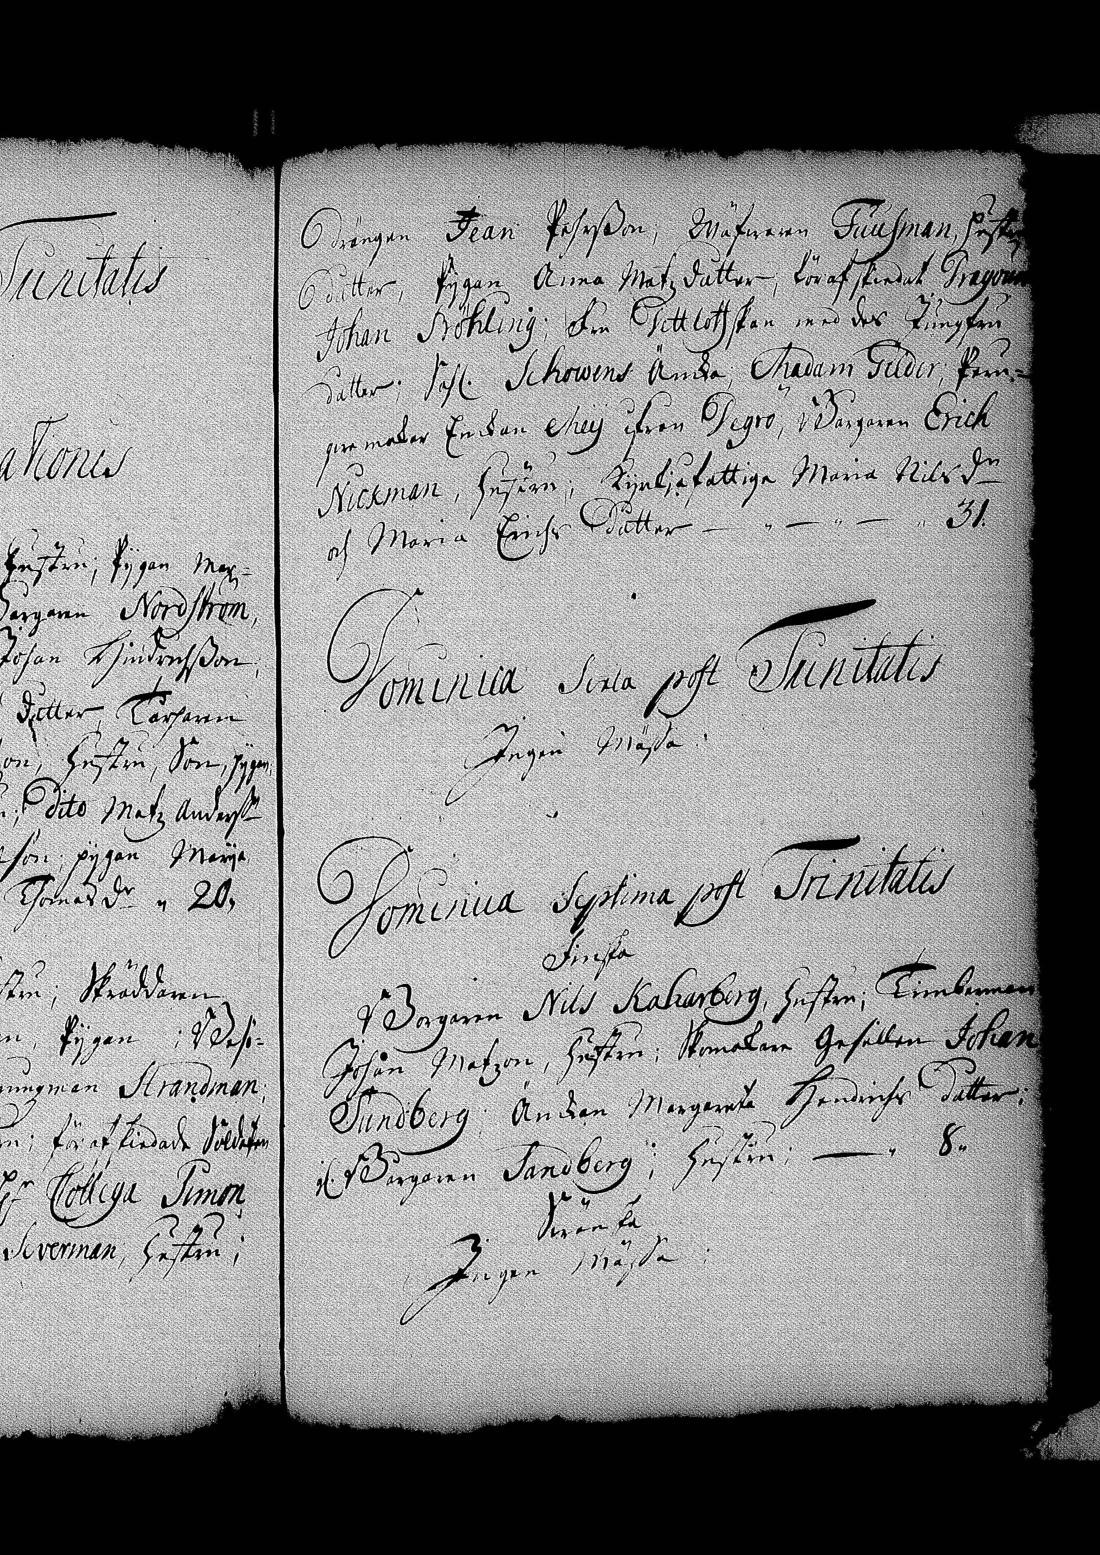 Trinitatis
ationis
hustru; Pygan Mar-
Borgaren Nordström,
Johan Hindrichßon;
dotter, Torparen
son, hustru, Son, pygan,
Dito Matz Anderss
son; pygan Marja
Thomas dr „ 20,
hustru; Skräddaren
Pygan
Strandman,
förafskiedade Soldaten
Collega Simon
Severman, hustru;
Drängen Jean Pehrsßon; Wäfwaren Tuusman, hustru
dotter, Pygan Anna Matz dotter, förafskiedat Dragoun
Johan Fröhling; Fru med des Jungfru
dotter; Sahl. Schowens Änka, Madam Gelder, Peru-
que makar Enckan Meij ifrån Degrö, Borgaren Erich
Nickman, hustru; Kyrkiofattiga Maria Nils dr
och Maria Erichs Dotter — „ — „ — „ 31.
Dominica Sexta post Trinitatis
Ingen Mässa:
Dominica Septima post Trinitatis
Finska
Borgaren Nils Kaharberg, hustru; Timberman
Johan Matzon, hustru; Skomakare Gesällen Johan
Sundberg; Änckan Margareta Hendrichs dotter;
Borgaren Sandberg; hustru; — „ 8„
Swänska
Ingen Mässa: